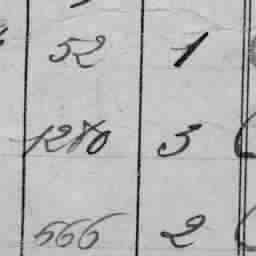 52 1
1280 3
566 2